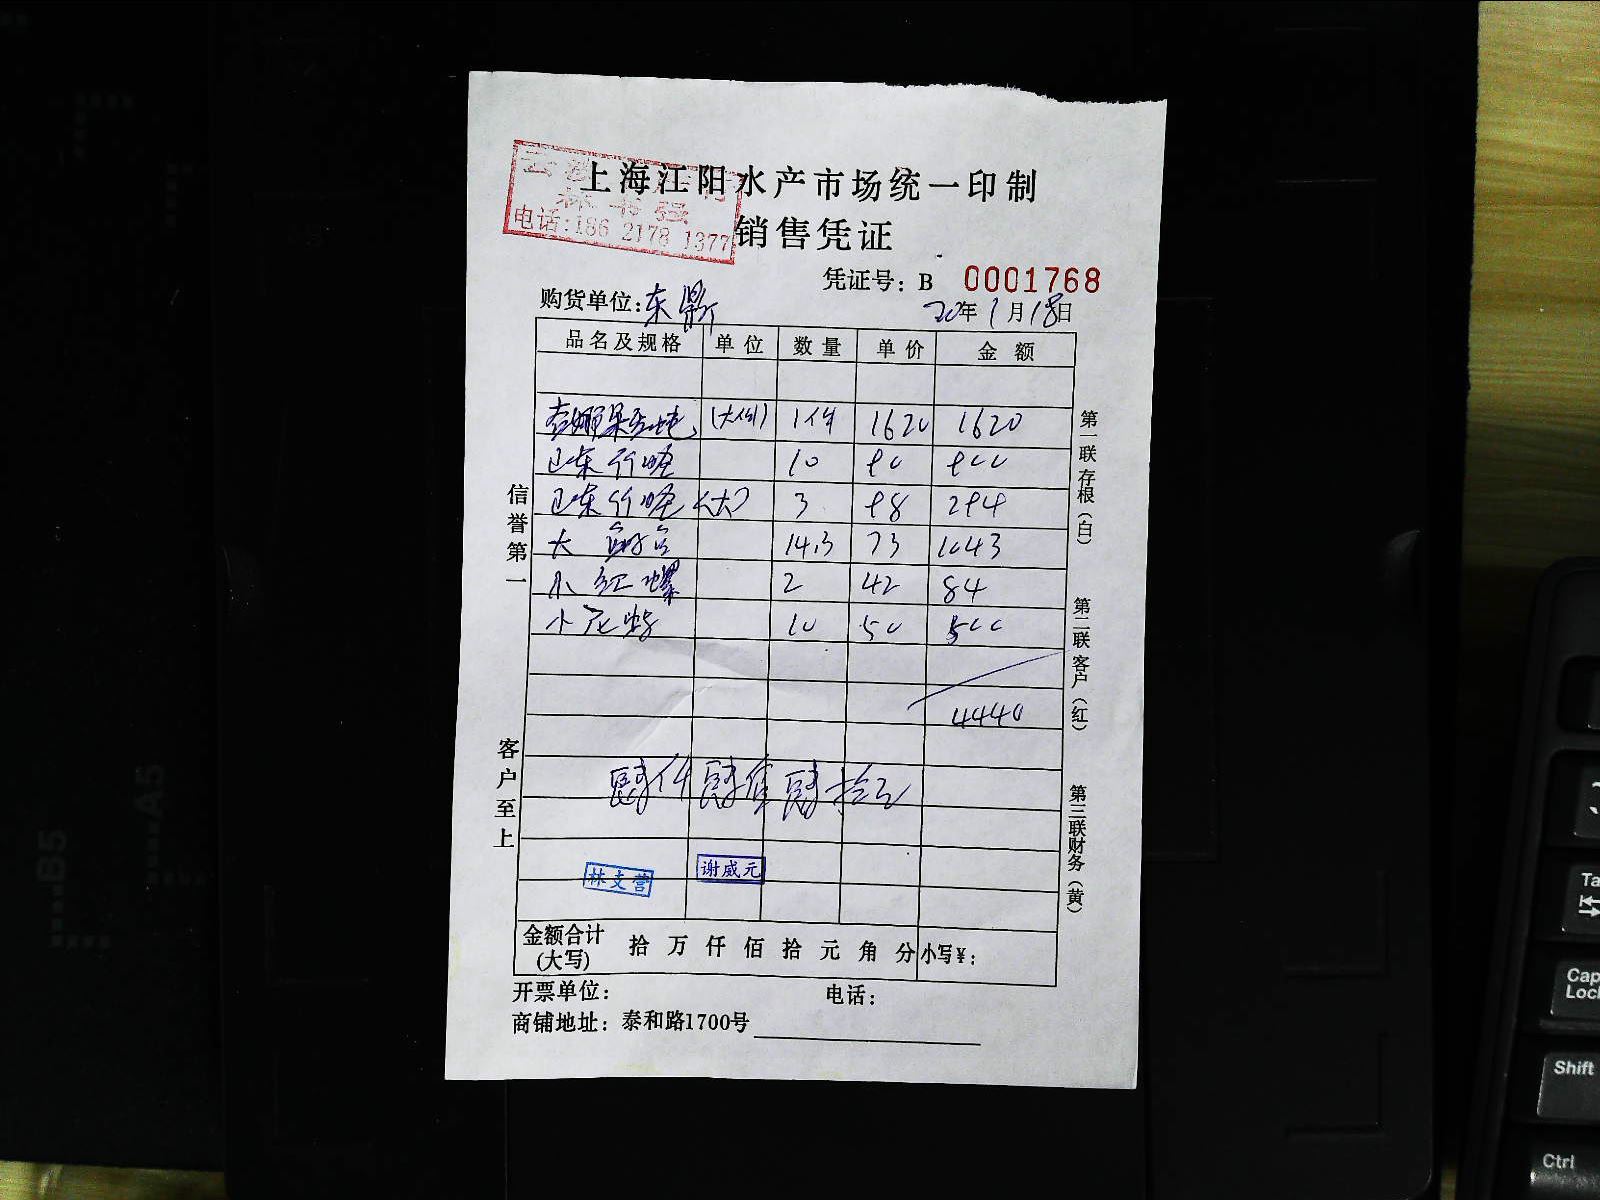 上海江阳水产市场统一印制
林书强
电话:186 2178 1377
销售凭证
凭证号: B 0001768
购货单位: 东鼎
20年1月18日
品名及规格 单位 数量 单价 金额
(大件) 1件 1620 1620
10 90 900
(大) 3 98 294
大 14.3 73 1043
小红螺 2 42 84
小花螺 10 50 500
4440
肆仟肆佰肆拾元
林支营 谢威元
金额合计(大写) 拾 万 仟 佰 拾 元 角 分 小写¥:
开票单位: 电话:
商铺地址: 泰和路1700号
信誉第一
客户至上
第一联存根(白)
第二联客户(红)
第三联财务(黄)
B5
A5
Ta
Cap
Loc
Shift
Ctrl